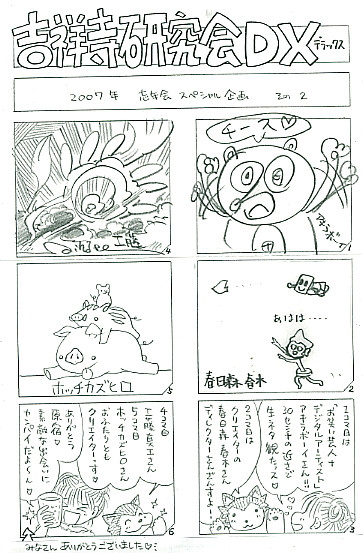 吉祥寺研究会DX
デラックス
2007年 忘年会 スペシャル企画 その2
チース♡
1
あはは‥‥
春日森春木
2
1コマ目は
"お笑い芸人+
デジタルアーティスト"
アオサボーイさん!!!
30センチの近さで
生ネタ観チャッス♡
2コマ目は
クリエイターの
春日森春木さん
ディレクターさんですよー!
3
工藤
4
ホッチカズヒロ
5
4コマ目
工藤良工さん
5コマ目
ホッチカズヒロさん
おふたりとも
クリエイターっす♡
ありがとう
原宿♡
素敵な出会いに
カンパイだよ〜ん♡
6
みなさんありがとうございました♡